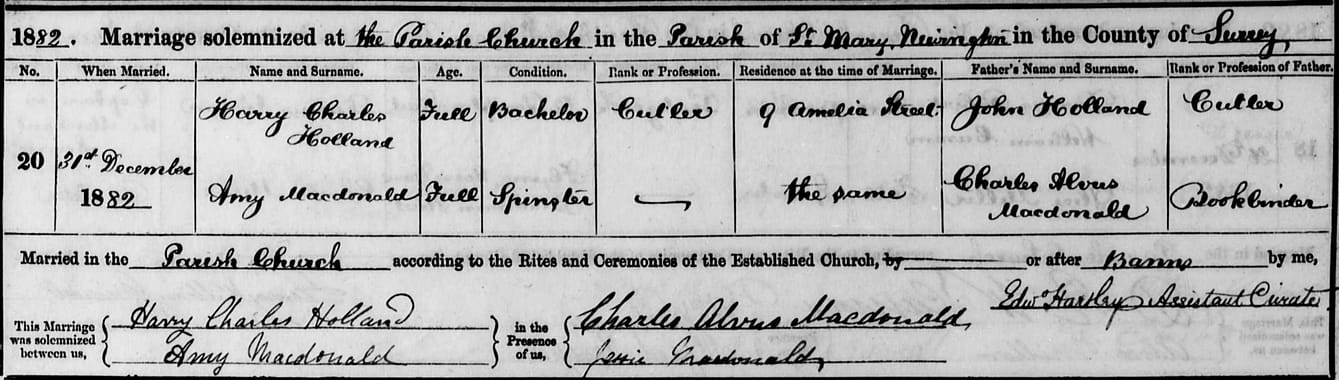 1882. Marriage solemnized at the Parish Church in the Parish of St Mary, Newington in the County of Surrey
No. When Married. Name and Surname. Age. Condition. Rank or Profession. Residence at the time of Marriage. Father's Name and Surname. Rank or Profession of Father.
20 31st December 1882
Harry Charles Holland Full Bachelor Cutler 9 Amelia Street. John Holland Cutler
Amy Macdonald Full Spinster — the same Charles Alvus Macdonald Bookbinder
Married in the Parish Church according to the Rites and Ceremonies of the Established Church, by or after Banns by me,
Edwd Hartley Assistant Curate
This Marriage was solemnized between us, Harry Charles Holland Amy Macdonald
in the Presence of us, Charles Alvus Macdonald, Jessie Macdonald,